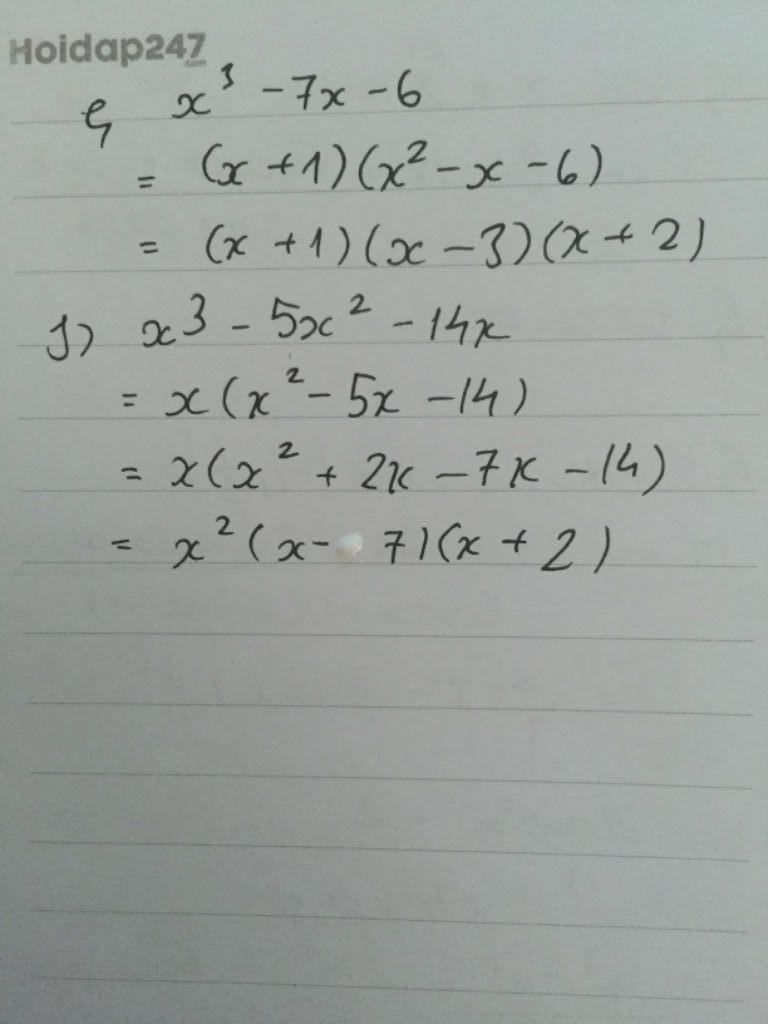 Hoidap247
.com
e, x³ - 7x - 6
= (x + 1)(x² - x - 6)
= (x + 1)(x - 3)(x + 2)
f) x³ - 5x² - 14x
= x(x² - 5x - 14)
= x(x² + 2x - 7x - 14)
= x²(x - 7)(x + 2)